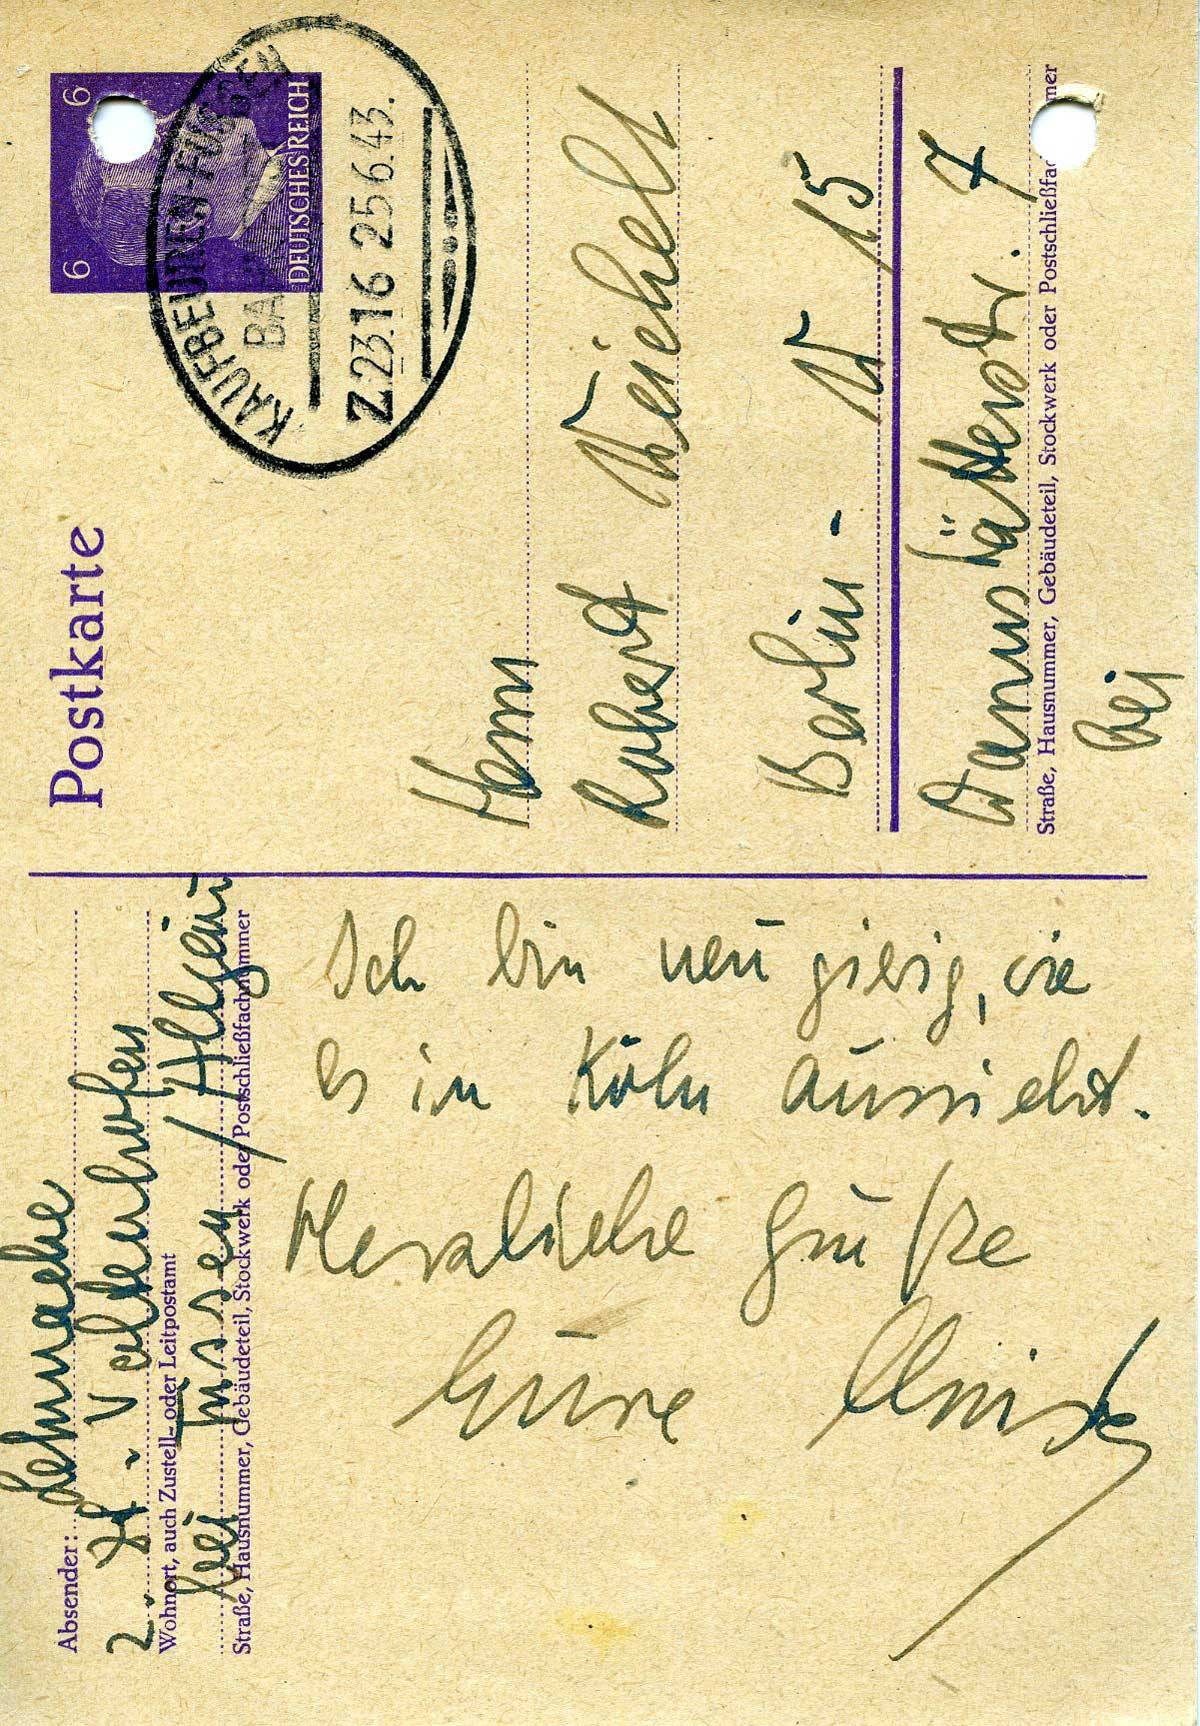 Absender: Lehmacher
z. Zt. Valdenhofen
Wohnort, auch Zustell- oder Leitpostamt
bei Füssen / Allgäu
Straße, Hausnummer, Gebäudeteil, Stockwerk oder Postschließfachnummer
Ich bin neugierig, wie
es in Köln aussieht.
Herzliche Grüße
Eure
Postkarte
6 6
DEUTSCHES REICH
KAUFBEUREN-FÜSSEN
BAHNPOST
Z.23.16 25 6.43.
Herrn
Robert Weichelt
Berlin - W 15
Darmstätterstr. 7
Straße, Hausnummer, Gebäudeteil, Stockwerk oder Postschließfachnummer
bei